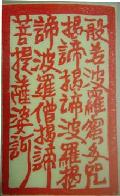 般若波羅蜜多呪
揭諦揭諦波羅揭
諦波羅僧揭諦
菩提薩婆訶